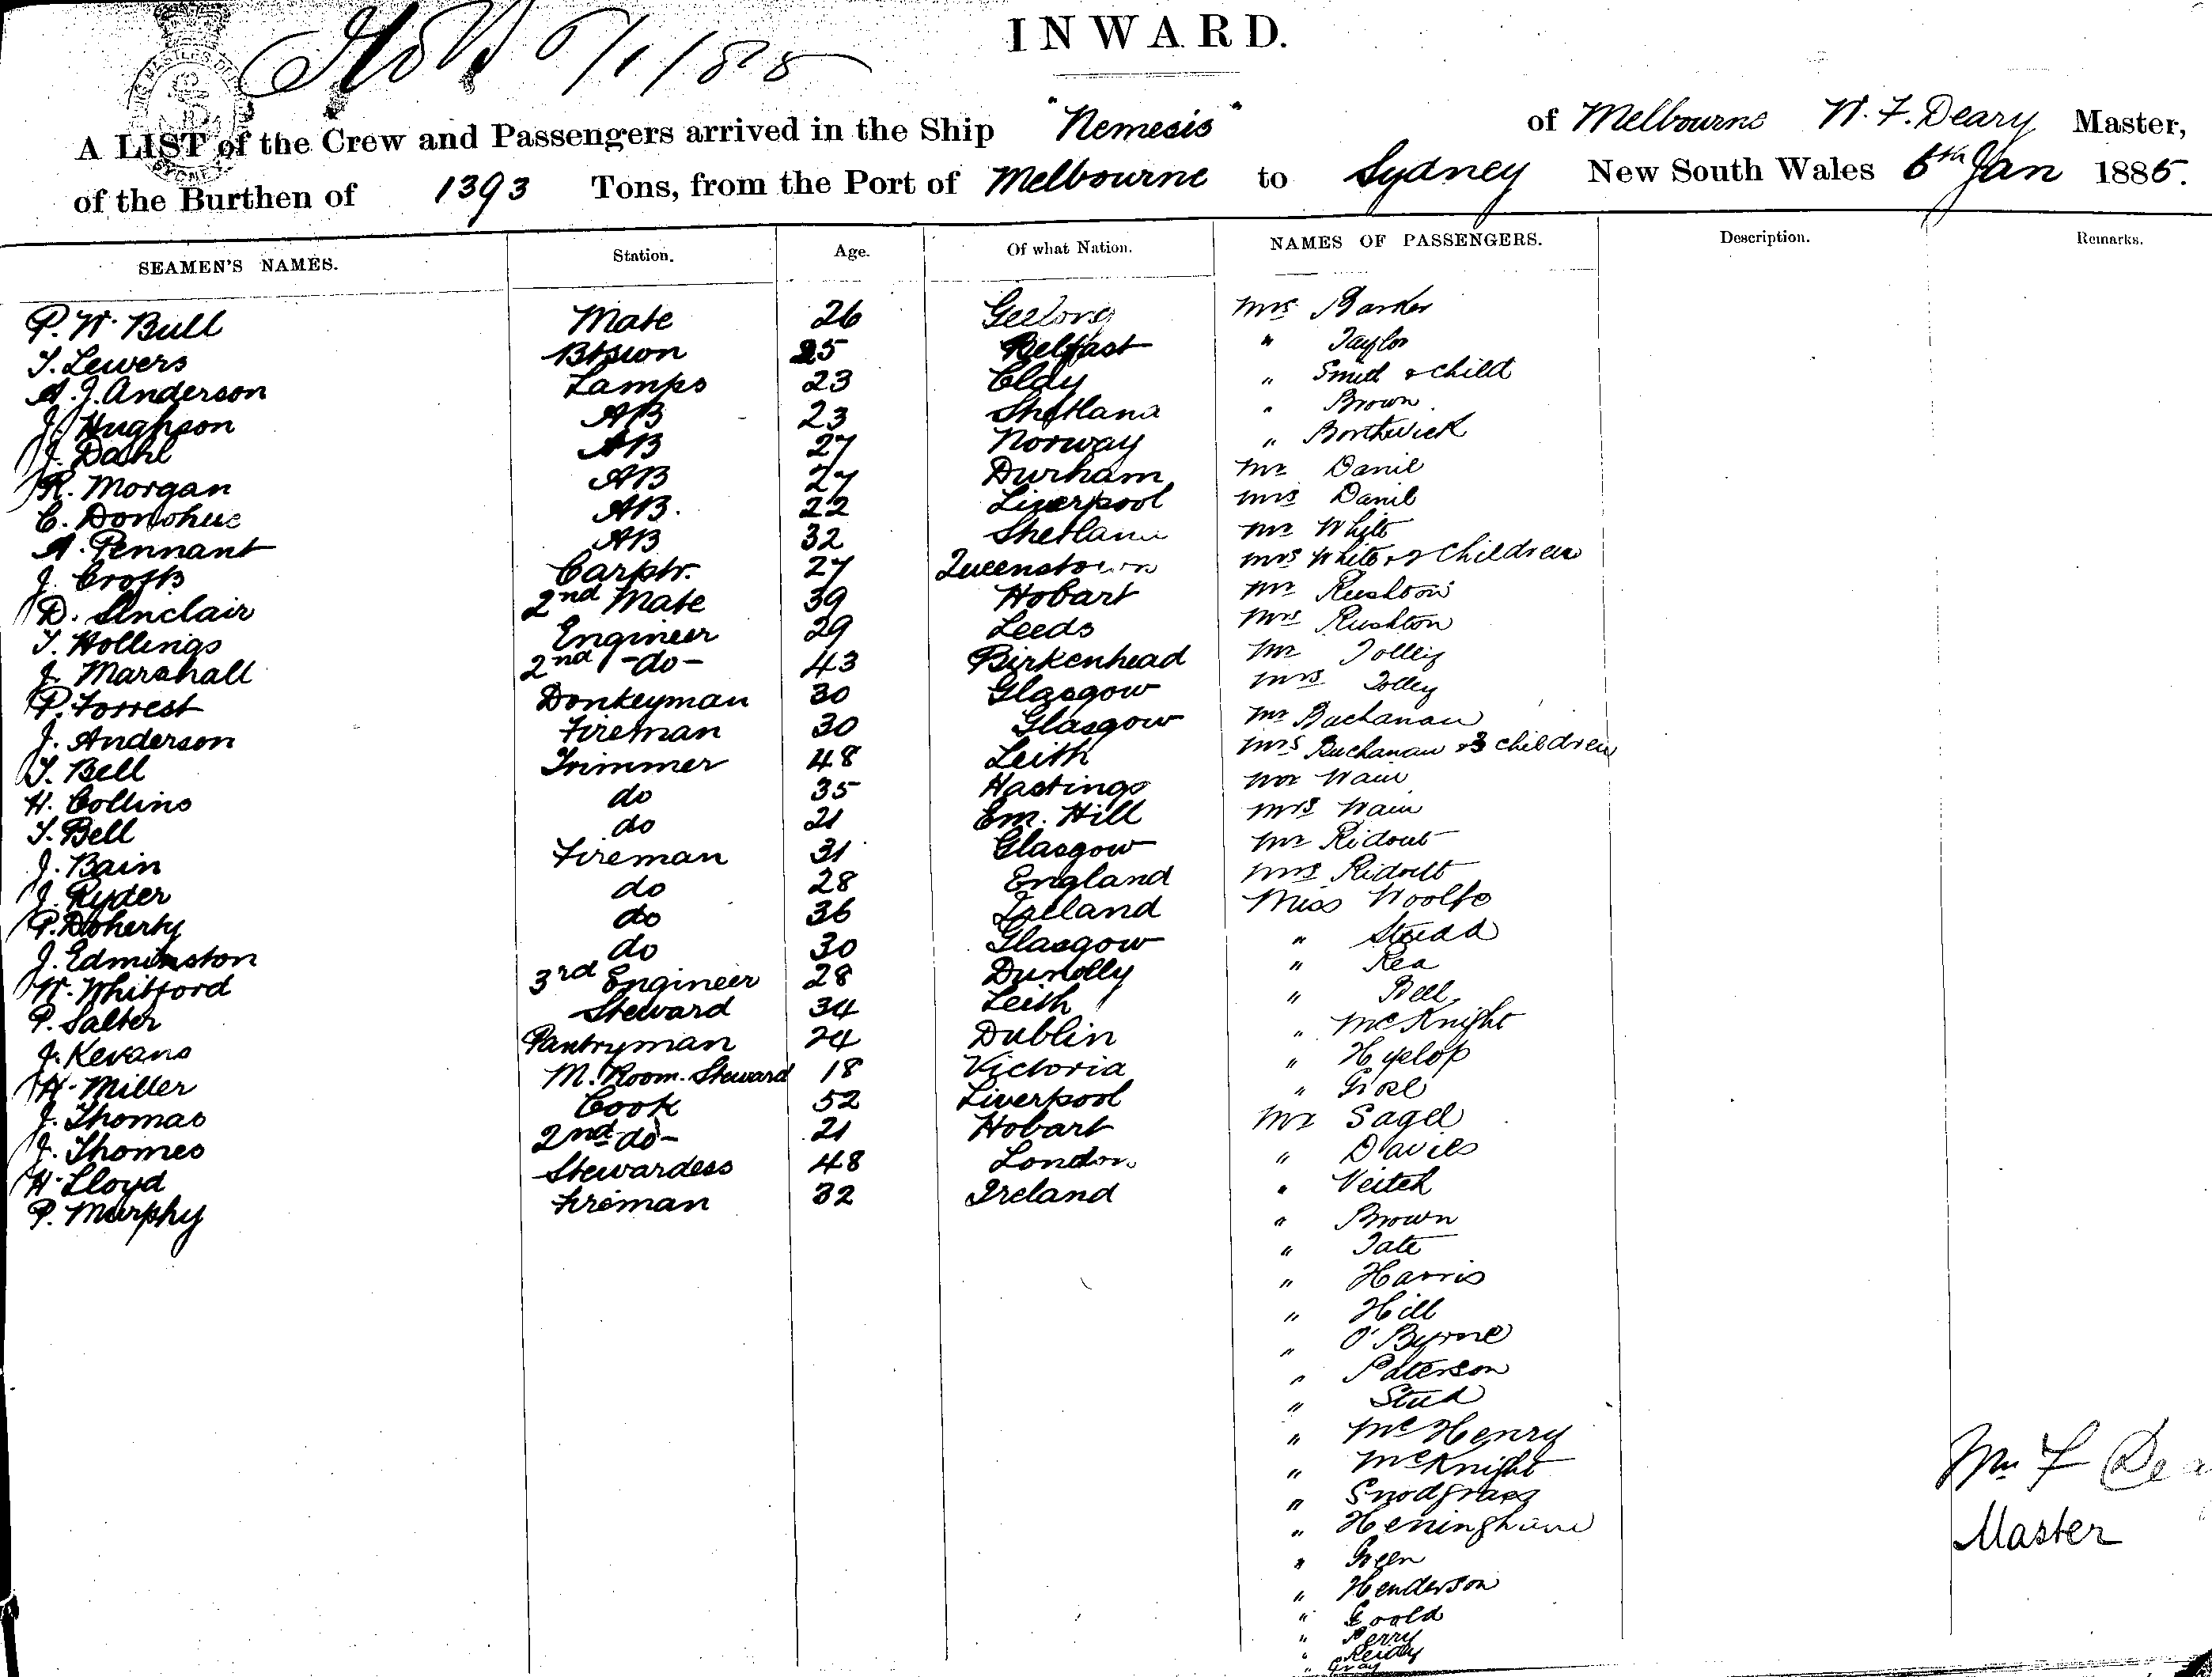 INWARD.
A LIST of the Crew and Passengers arrived in the Ship "Nemesis" of Melbourne W. F. Deary Master,
of the Burthen of 1393 Tons, from the Port of Melbourne to Sydney New South Wales 6th Jan 1885.
SEAMEN'S NAMES. Station. Age. Of what Nation. NAMES OF PASSENGERS. Description. Remarks.
P. W. Bull Mate 26 Geelong Mrs Barker
T. Lewers Btswn 25 Belfast " Taylor
A. J. Anderson Lamps 23 " Smith & child
J. Hughson AB 23 Shetland " Brown
J. Dahl AB 27 Norway " Borthwick
R. Morgan AB 27 Durham Mr Danil
C. Donohue AB. 22 Liverpool Mrs Danil
A. Pennant AB 32 Shetland Mr White
J. Crofts Carptr. 27 Queenstown Mrs White & 2 children
D. Sinclair 2nd Mate 39 Hobart Mr Rushton
T. Hollings Engineer 29 Leeds Mrs Rushton
J. Marshall 2nd -do- 43 Birkenhead Mr Tolley
P. Forrest Donkeyman 30 Glasgow Mrs Tolley
J. Anderson Fireman 30 Glasgow Mr Buchanan
T. Bell Trimmer 48 Leith Mrs Buchanan & 3 children
H. Collins do 35 Hastings Mr Wain
T. Bell do 21 Em. Hill Mrs Wain
J. Bain Fireman 31 Glasgow Mr Ridout
J. Ryder do 28 England Mrs Ridout
P. Doherty do 36 Ireland Miss Woolfe
J. Edminston do 30 Glasgow " Studd
W. Whitford 3rd Engineer 28 Dunolly " Rea
P. Salter Steward 34 Leith " Bell
J. Kevans Pantryman 24 Dublin " McKnight
H. Miller M. Room. Steward 18 Victoria " Hyslop
J. Thomas Cook 52 Liverpool "
J. Thomes 2nd -do- 21 Hobart Mr Sagel
H. Lloyd Stewardess 48 London " Davies
P. Murphy Fireman 32 Ireland " Veitch
" Brown
" Tate
" Harris
" Hill
" O'Byrne
" Paterson
" Stud
" McHenry
" McKnight
" Snodgrass
" Heningham
" Green
" Henderson
" Goold
" Perry
" Reidy
" Gray
Wm F Dea
Master